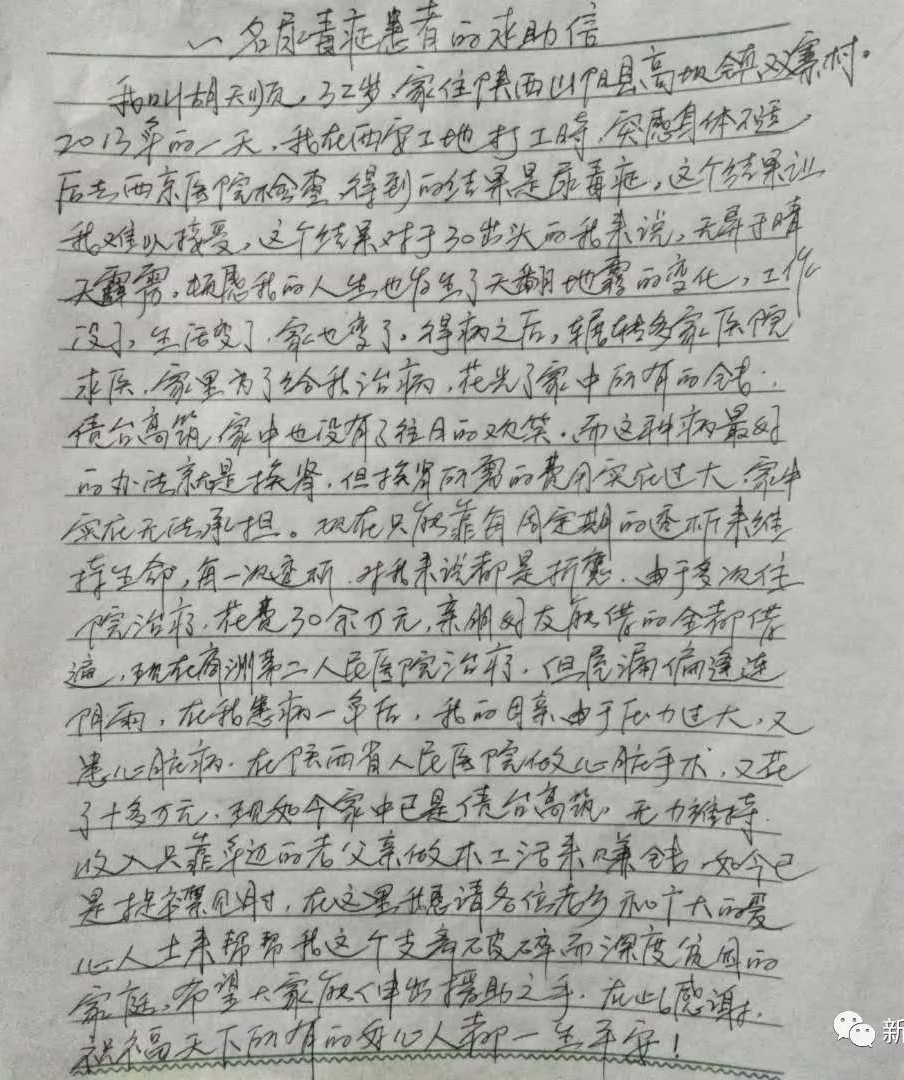 一名尿毒症患者的求助信
我叫胡天顺，32岁.家住陕西山阳县高坝镇双寨村。
2013年的一天，我在西安工地打工时，突感身体不适，
后去西京医院检查，得到的结果是尿毒症，这个结果让
我难以接受，这个结果对于30出头的我来说，无异于晴
天霹雳。顿感我的人生也发生了天翻地覆的变化，工作
没了，生活变了，家也变了。得病之后，辗转多家医院
求医，家里为了给我治病，花光了家中所有的钱.
债台高筑，家中也没有了往日的欢笑.而这种病最好
的办法就是换肾，但换肾所需的费用实在过大，家中
实在无法承担。现在只能靠每周定期的透析来维
持生命，每一次透析.对我来说都是折磨.由于多次住
院治疗.花费30余万元，亲朋好友能借的全都借
遍，现在商洲第二人民医院治疗，但屋漏偏逢连
阴雨，在我患病一年后，我的母亲由于压力过大，又
患心脏病.在陕西省人民医院做心脏手术，又花
了十多万元.现如今家中已是债台高筑，无力维持.
收入只靠年迈的老父亲做木工活来赚钱.如今已
是捉襟见肘，在这里我恳请各位老乡和广大的爱
心人士来帮帮我这个支离破碎而深度贫困的
家庭，希望大家能伸出援助之手.在此感谢.
祝福天下所有的好心人都一生平安！
新